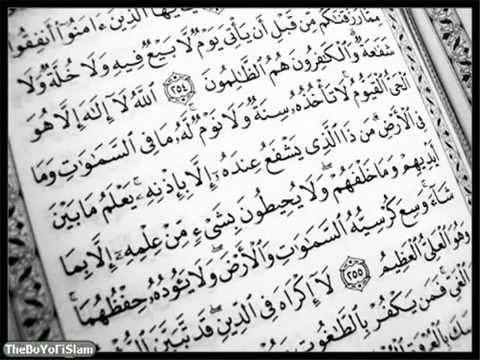 يَٰٓأَيُّهَا ٱلَّذِينَ ءَامَنُوٓا۟ أَنفِقُوا۟
مِمَّا رَزَقْنَٰكُم مِّن قَبْلِ أَن يَأْتِىَ يَوْمٌ لَّا بَيْعٌ فِيهِ وَلَا خُلَّةٌ وَلَا
شَفَٰعَةٌ ۗ وَٱلْكَٰفِرُونَ هُمُ ٱلظَّٰلِمُونَ ٢٥٤ ٱللَّهُ لَآ إِلَٰهَ إِلَّا هُوَ
ٱلْحَىُّ ٱلْقَيُّومُ ۚ لَا تَأْخُذُهُۥ سِنَةٌ وَلَا نَوْمٌ ۚ لَّهُۥ مَا فِى ٱلسَّمَٰوَٰتِ وَمَا
فِى ٱلْأَرْضِ ۗ مَن ذَا ٱلَّذِى يَشْفَعُ عِندَهُۥٓ إِلَّا بِإِذْنِهِۦ ۚ يَعْلَمُ مَا بَيْنَ
أَيْدِيهِمْ وَمَا خَلْفَهُمْ ۖ وَلَا يُحِيطُونَ بِشَىْءٍ مِّنْ عِلْمِهِۦٓ إِلَّا بِمَا
شَآءَ ۚ وَسِعَ كُرْسِيُّهُ ٱلسَّمَٰوَٰتِ وَٱلْأَرْضَ ۖ وَلَا يَـُٔودُهُۥ حِفْظُهُمَا ۚ
وَهُوَ ٱلْعَلِىُّ ٱلْعَظِيمُ ٢٥٥ لَآ إِكْرَاهَ فِى ٱلدِّينِ ۖ قَد تَّبَيَّنَ
ٱلْغَىِّ ۚ فَمَن يَكْفُرْ بِٱلطَّٰغُوتِ
TheBoYoFiSlam